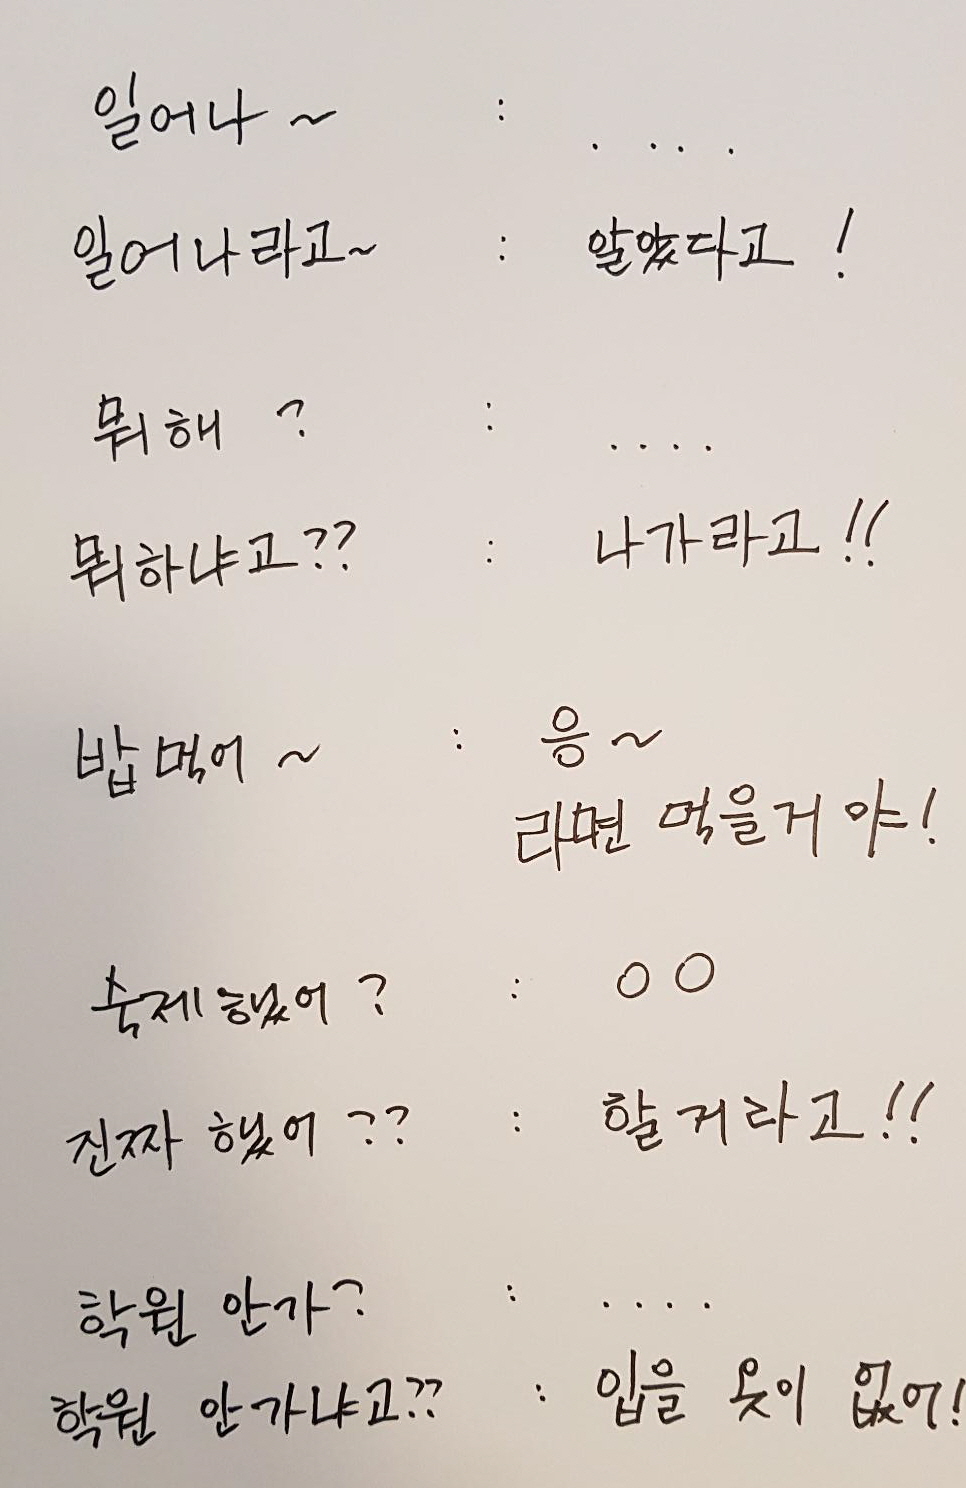 일어나~ : ....
일어나라고~ : 알았다고!
뭐해? : ....
뭐하냐고?? : 나가라고!!
밥먹어~ : 응~
라면 먹을거야!
숙제했어? : ㅇㅇ
진짜 했어?? : 할거라고!!
학원 안가? : ....
학원 안가냐고?? : 입을 옷이 없어!